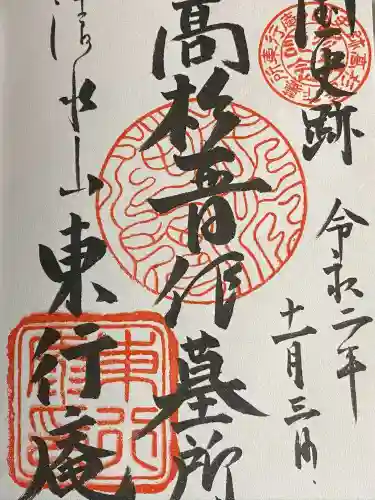 国史跡
令和二年
十一月三日
高杉晋作墓所
清水山東行庵